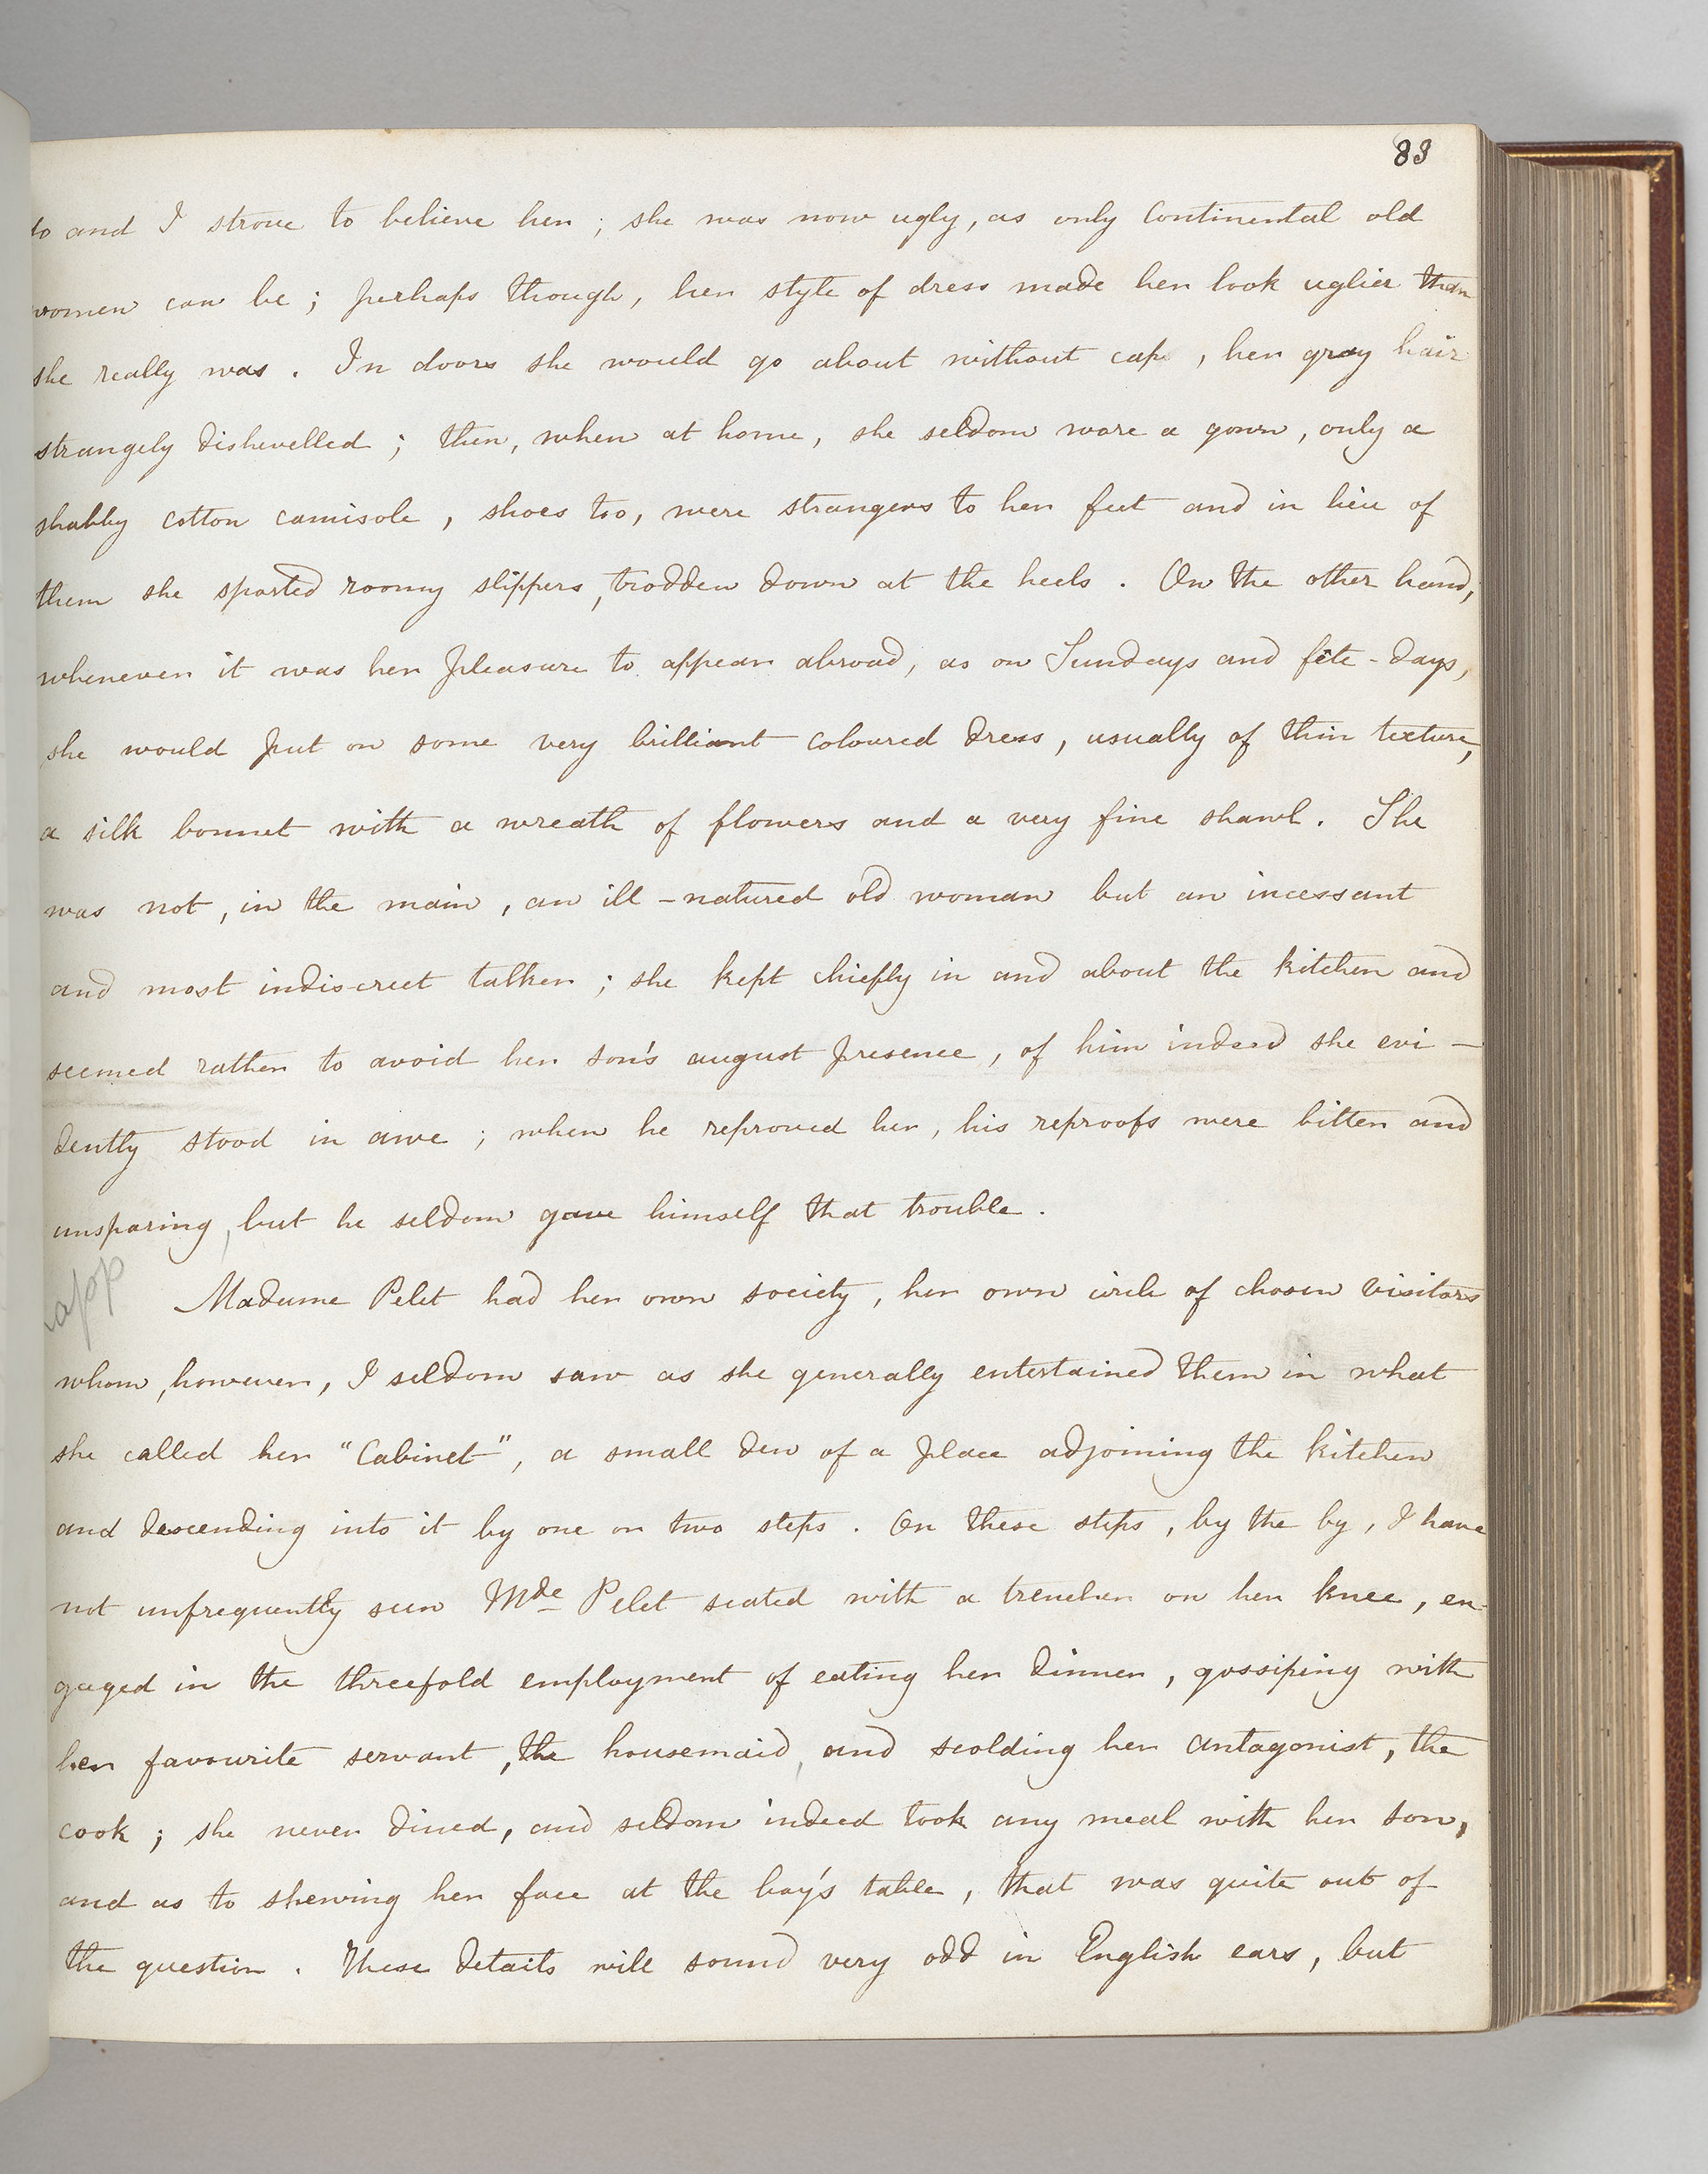 83
to and I strove to believe her ; she was now ugly, as only Continental old
women can be ; perhaps though, her style of dress made her look uglier than
she really was . In doors she would go about without cap , her gray hair
strangely dishevelled ; then, when at home, she seldom wore a gown, only a
shabby cotton camisole , shoes too, were strangers to her feet and in lieu of
them she sported roomy slippers, trodden down at the heels . On the other hand,
whenever it was her pleasure to appear abroad, as on Sundays and fête-days,
she would put on some very brilliant coloured dress, usually of thin texture,
a silk bonnet with a wreath of flowers and a very fine shawl . She
was not, in the main, an ill-natured old woman but an incessant
and most indiscreet talker ; she kept chiefly in and about the kitchen and
seemed rather to avoid her son's august presence, of him indeed she evi-
dently stood in awe ; when he reproved her, his reproofs were bitter and
unsparing, but he seldom gave himself that trouble .
Madame Pelet had her own society, her own circle of chosen visitors
whom, however, I seldom saw as she generally entertained them in what
she called her "Cabinet", a small den of a place adjoining the kitchen
and descending into it by one or two steps . On these steps, by the by, I have
not unfrequently seen Mde Pelet seated with a trencher on her knee, en-
gaged in the threefold employment of eating her dinner, gossiping with
her favourite servant, the housemaid, and scolding her antagonist, the
cook ; she never dined, and seldom indeed took any meal with her son,
and as to shewing her face at the boy's table, that was quite out of
the question . These details will sound very odd in English ears, but